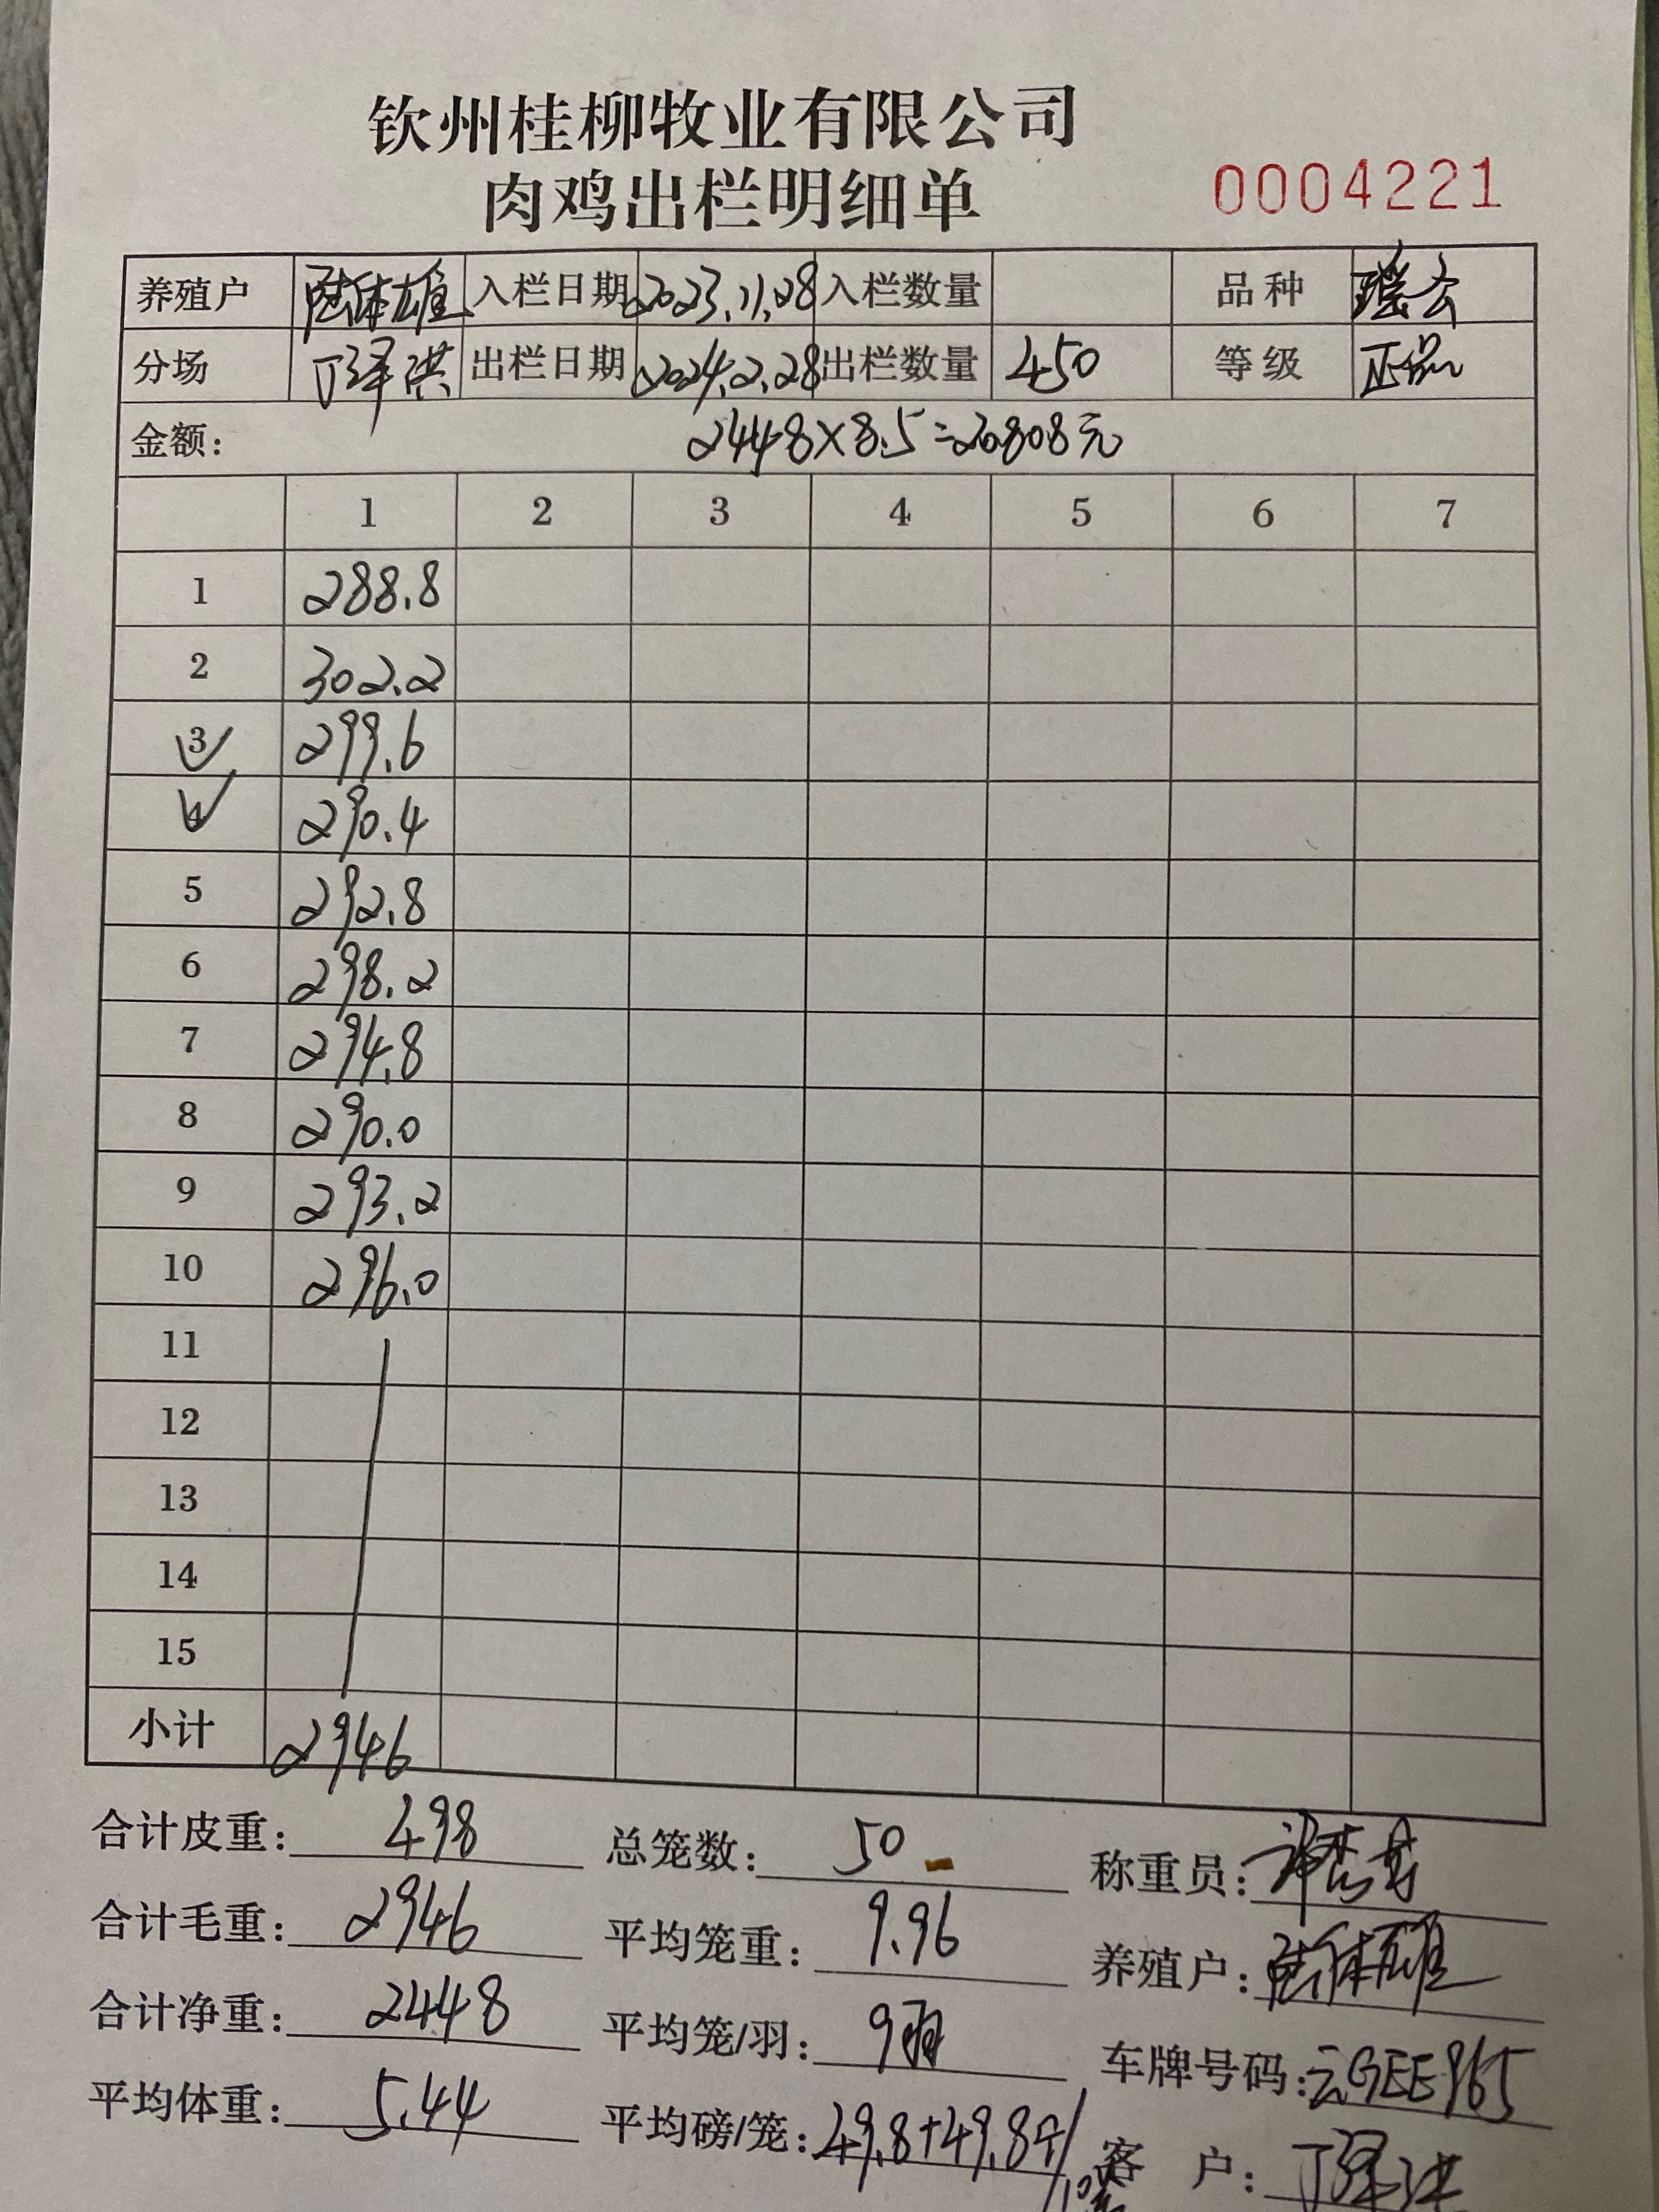 钦州桂柳牧业有限公司
肉鸡出栏明细单 0004221
养殖户 陆体雄 入栏日期 2023.11.28 入栏数量 品种 瑶公
分场 丁泽洪 出栏日期 2024.2.28 出栏数量 450 等级 正品
金额: 2448×8.5=20808元
1 2 3 4 5 6 7
1 288.8
2 302.2
3 299.6
4 290.4
5 292.8
6 298.2
7 294.8
8 290.0
9 293.2
10 296.0
11
12
13
14
15
小计 2946
合计皮重: 498 总笼数: 50 称重员:
合计毛重: 2946 平均笼重: 9.96 养殖户: 陆体雄
合计净重: 2448 平均笼/羽: 9羽 车牌号码: 云GEE965
平均体重: 5.44 平均磅/笼: 49.8+49.8 客户: 丁泽洪